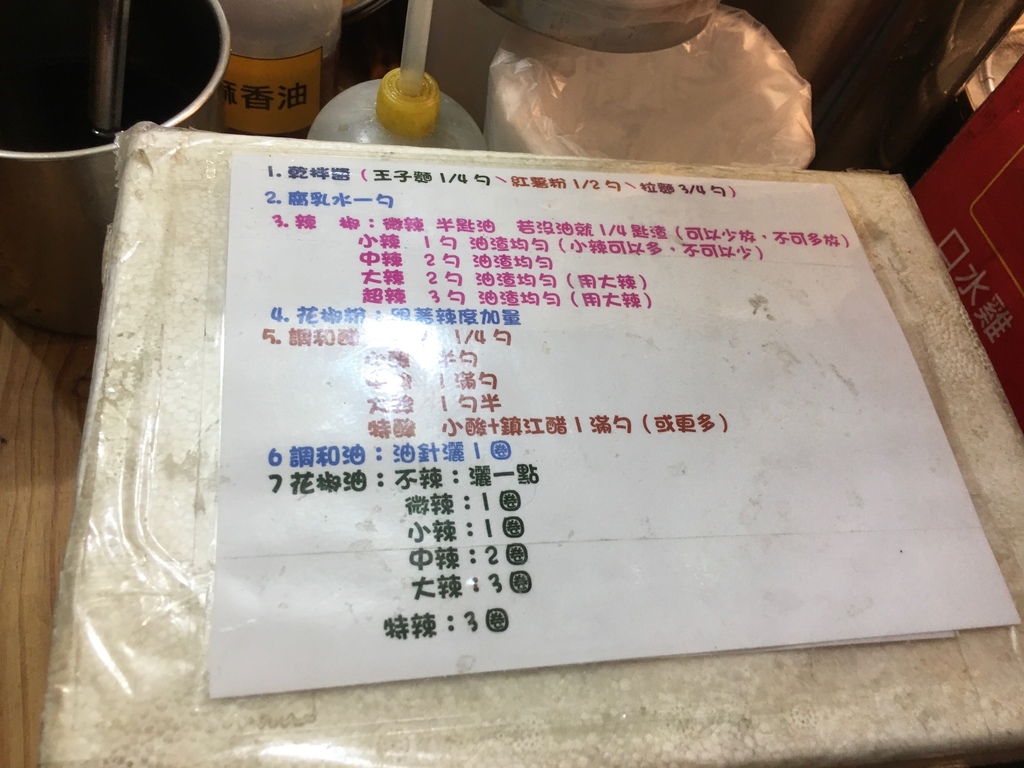 麻香油
1. 乾拌醬（王子麵 1/4 勺、紅薯粉 1/2 勺、拉麵 3/4 勺）
2. 腐乳水一勺
3. 辣 椒：微辣 半匙油 若沒油就 1/4 匙渣（可以少放，不可多放）
小辣 1 勺 油渣均勻（小辣可以多，不可以少）
中辣 2 勺 油渣均勻
大辣 2 勺 油渣均勻（用大辣）
超辣 3 勺 油渣均勻（用大辣）
4. 花椒粉：跟著辣度加量
5. 調和醋 1/4 勺
半勺
1 滿勺
大酸 1 勺半
特酸 小酸+鎮江醋 1 滿勺（或更多）
6 調和油：油針灑 1 圈
7 花椒油：不辣：灑一點
微辣：1 圈
小辣：1 圈
中辣：2 圈
大辣：3 圈
特辣：3 圈
口水雞